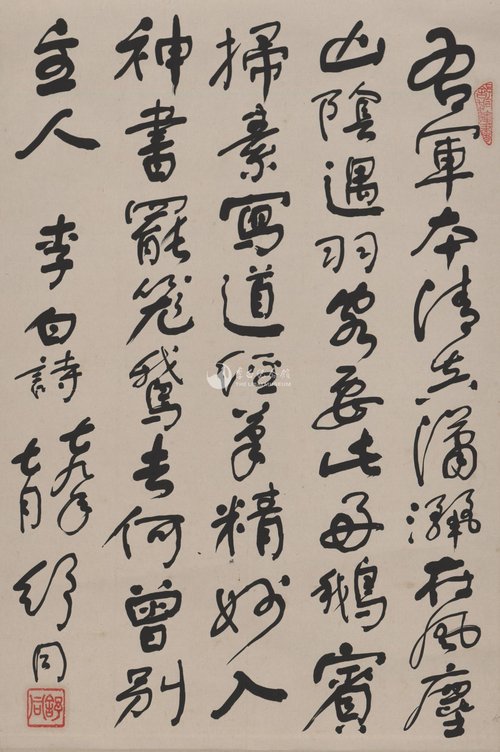 右軍本清真瀟灑在風塵
山陰遇羽客要此好鵝賓
掃素寫道經筆精妙入
神書罷籠鵝去何曾別
主人 李白詩 七九年
七月 舒同
舒同